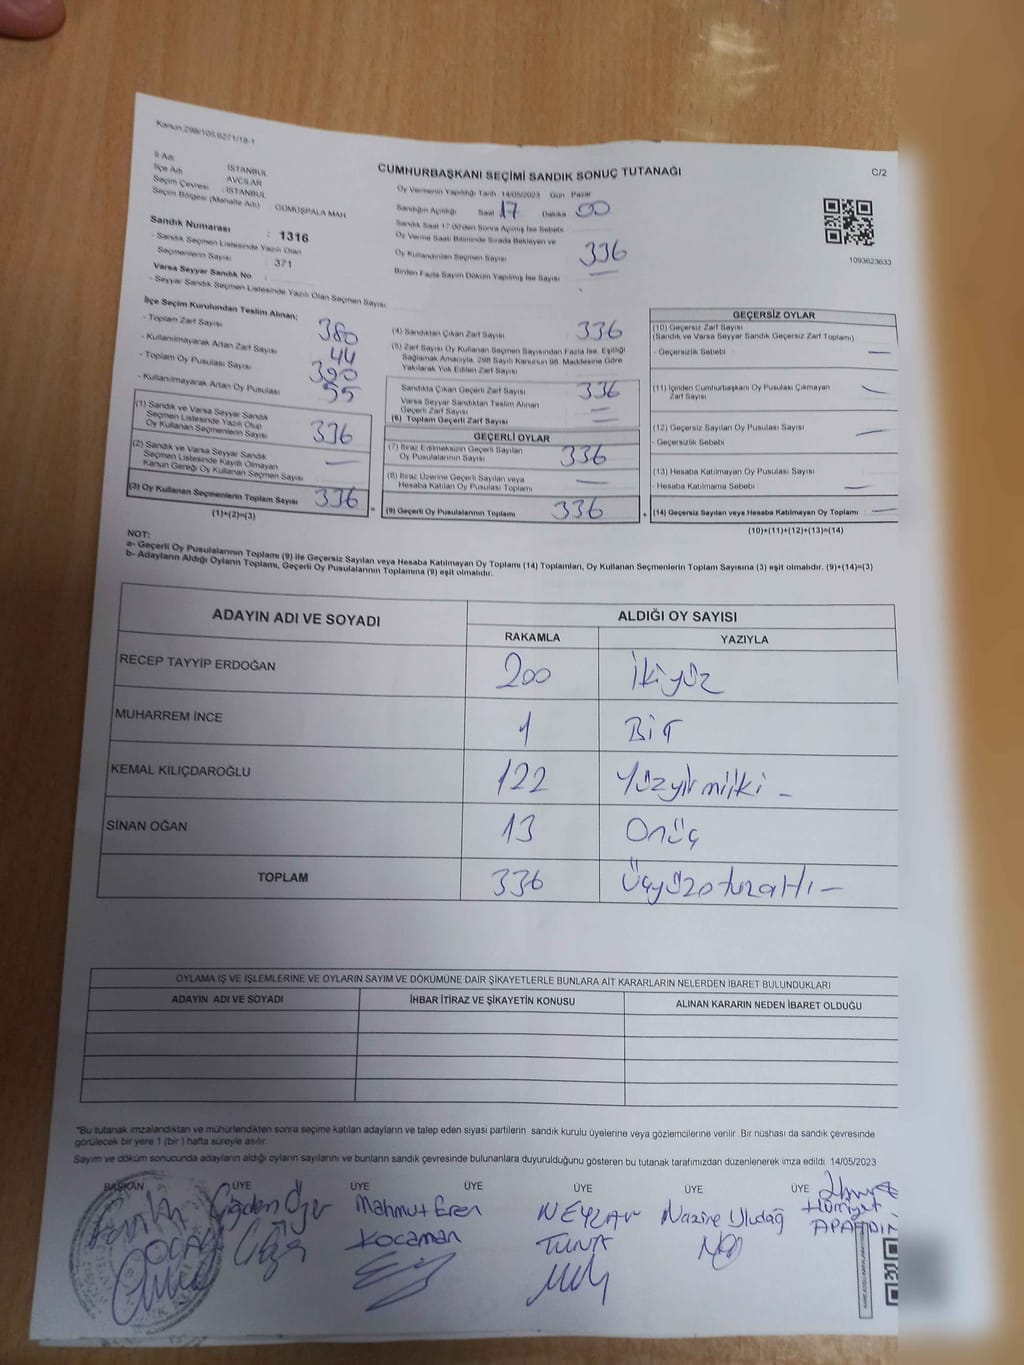 Kanun:298/105,6271/18-1
CUMHURBAŞKANI SEÇİMİ SANDIK SONUÇ TUTANAĞI
C/2
İl Adı İSTANBUL
İlçe Adı AVCILAR
Seçim Çevresi : İSTANBUL
Seçim Bölgesi (Mahalle Adı) GÜMÜŞPALA MAH
Sandık Numarası : 1316
- Sandık Seçmen Listesinde Yazılı Olan
Seçmenlerin Sayısı 371
Varsa Seyyar Sandık No
- Seyyar Sandık Seçmen Listesinde Yazılı Olan Seçmen Sayısı
Oy Vermenin Yapıldığı Tarih 14/05/2023 Gün : Pazar
Sandığın Açıldığı Saat 17 Dakika 00
Sandık Saat 17:00'den Sonra Açılmış İse Sebebi
Oy Verme Saati Bitiminde Sırada Bekleyen ve
Oy Kullandırılan Seçmen Sayısı 336
Birden Fazla Sayım Döküm Yapılmış İse Sayısı —
1093623633
İlçe Seçim Kurulundan Teslim Alınan;
- Toplam Zarf Sayısı 380
- Kullanılmayarak Artan Zarf Sayısı 44
- Toplam Oy Pusulası Sayısı 390
- Kullanılmayarak Artan Oy Pusulası 55
(1) Sandık ve Varsa Seyyar Sandık
Seçmen Listesinde Yazılı Olup
Oy Kullanan Seçmenlerin Sayısı 336
(2) Sandık ve Varsa Seyyar Sandık
Seçmen Listesinde Kayıtlı Olmayan
Kanun Gereği Oy Kullanan Seçmen Sayısı —
(3) Oy Kullanan Seçmenlerin Toplam Sayısı 336
(1)+(2)=(3)
(4) Sandıktan Çıkan Zarf Sayısı 336
(5) Zarf Sayısı Oy Kullanan Seçmen Sayısından Fazla İse, Eşitliği
Sağlamak Amacıyla, 298 Sayılı Kanunun 98. Maddesine Göre
Yakılarak Yok Edilen Zarf Sayısı
Sandıkta Çıkan Geçerli Zarf Sayısı 336
Varsa Seyyar Sandıktan Teslim Alınan
Geçerli Zarf Sayısı —
(6) Toplam Geçerli Zarf Sayısı —
GEÇERLİ OYLAR
(7) İtiraz Edilmeksizin Geçerli Sayılan
Oy Pusulalarının Sayısı 336
(8) İtiraz Üzerine Geçerli Sayılan veya
Hesaba Katılan Oy Pusulası Toplamı —
= (9) Geçerli Oy Pusulalarının Toplamı 336
GEÇERSİZ OYLAR
(10) Geçersiz Zarf Sayısı
(Sandık ve Varsa Seyyar Sandık Geçersiz Zarf Toplamı)
- Geçersizlik Sebebi : —
(11) İçinden Cumhurbaşkanı Oy Pusulası Çıkmayan
Zarf Sayısı —
(12) Geçersiz Sayılan Oy Pusulası Sayısı —
- Geçersizlik Sebebi
(13) Hesaba Katılmayan Oy Pusulası Sayısı
- Hesaba Katılmama Sebebi : —
+ (14) Geçersiz Sayılan veya Hesaba Katılmayan Oy Toplamı —
(10)+(11)+(12)+(13)=(14)
NOT:
a- Geçerli Oy Pusulalarının Toplamı (9) ile Geçersiz Sayılan veya Hesaba Katılmayan Oy Toplamı (14) Toplamları, Oy Kullanan Seçmenlerin Toplam Sayısına (3) eşit olmalıdır. (9)+(14)=(3)
b- Adayların Aldığı Oyların Toplamı, Geçerli Oy Pusulalarının Toplamına (9) eşit olmalıdır.
ADAYIN ADI VE SOYADI ALDIĞI OY SAYISI
RAKAMLA YAZIYLA
RECEP TAYYİP ERDOĞAN 200 İkiyüz
MUHARREM İNCE 1 Bir
KEMAL KILIÇDAROĞLU 122 Yüzyirmiiki –
SİNAN OĞAN 13 Onüç
TOPLAM 336 Üçyüzotuzaltı –
OYLAMA İŞ VE İŞLEMLERİNE VE OYLARIN SAYIM VE DÖKÜMÜNE DAİR ŞİKAYETLERLE BUNLARA AİT KARARLARIN NELERDEN İBARET BULUNDUKLARI
ADAYIN ADI VE SOYADI İHBAR İTİRAZ VE ŞİKAYETİN KONUSU ALINAN KARARIN NEDEN İBARET OLDUĞU
"Bu tutanak imzalandıktan ve mühürlendikten sonra seçime katılan adayların ve talep eden siyasi partilerin sandık kurulu üyelerine veya gözlemcilerine verilir. Bir nüshası da sandık çevresinde
görülecek bir yere 1 (bir) hafta süreyle asılır.
Sayım ve döküm sonucunda adayların aldığı oyların sayılarını ve bunların sandık çevresinde bulunanlara duyurulduğunu gösteren bu tutanak tarafımızdan düzenlenerek imza edildi. 14/05/2023
BAŞKAN ÜYE ÜYE ÜYE ÜYE ÜYE ÜYE
Mahmut Eren NEYZAR Nazire Uludağ Hürriyet
Kocaman TUNA APAYDIN